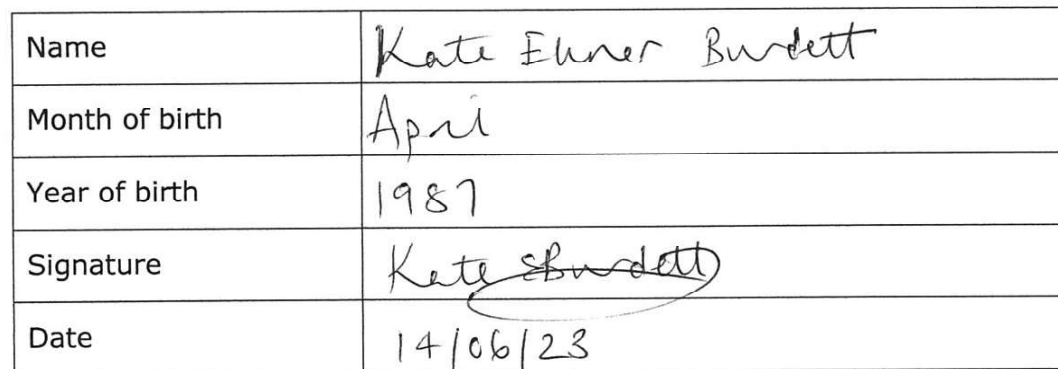 Name Kate Elmer Burdett
Month of birth April
Year of birth 1987
Signature Kate EBurdett
Date 14/06/23